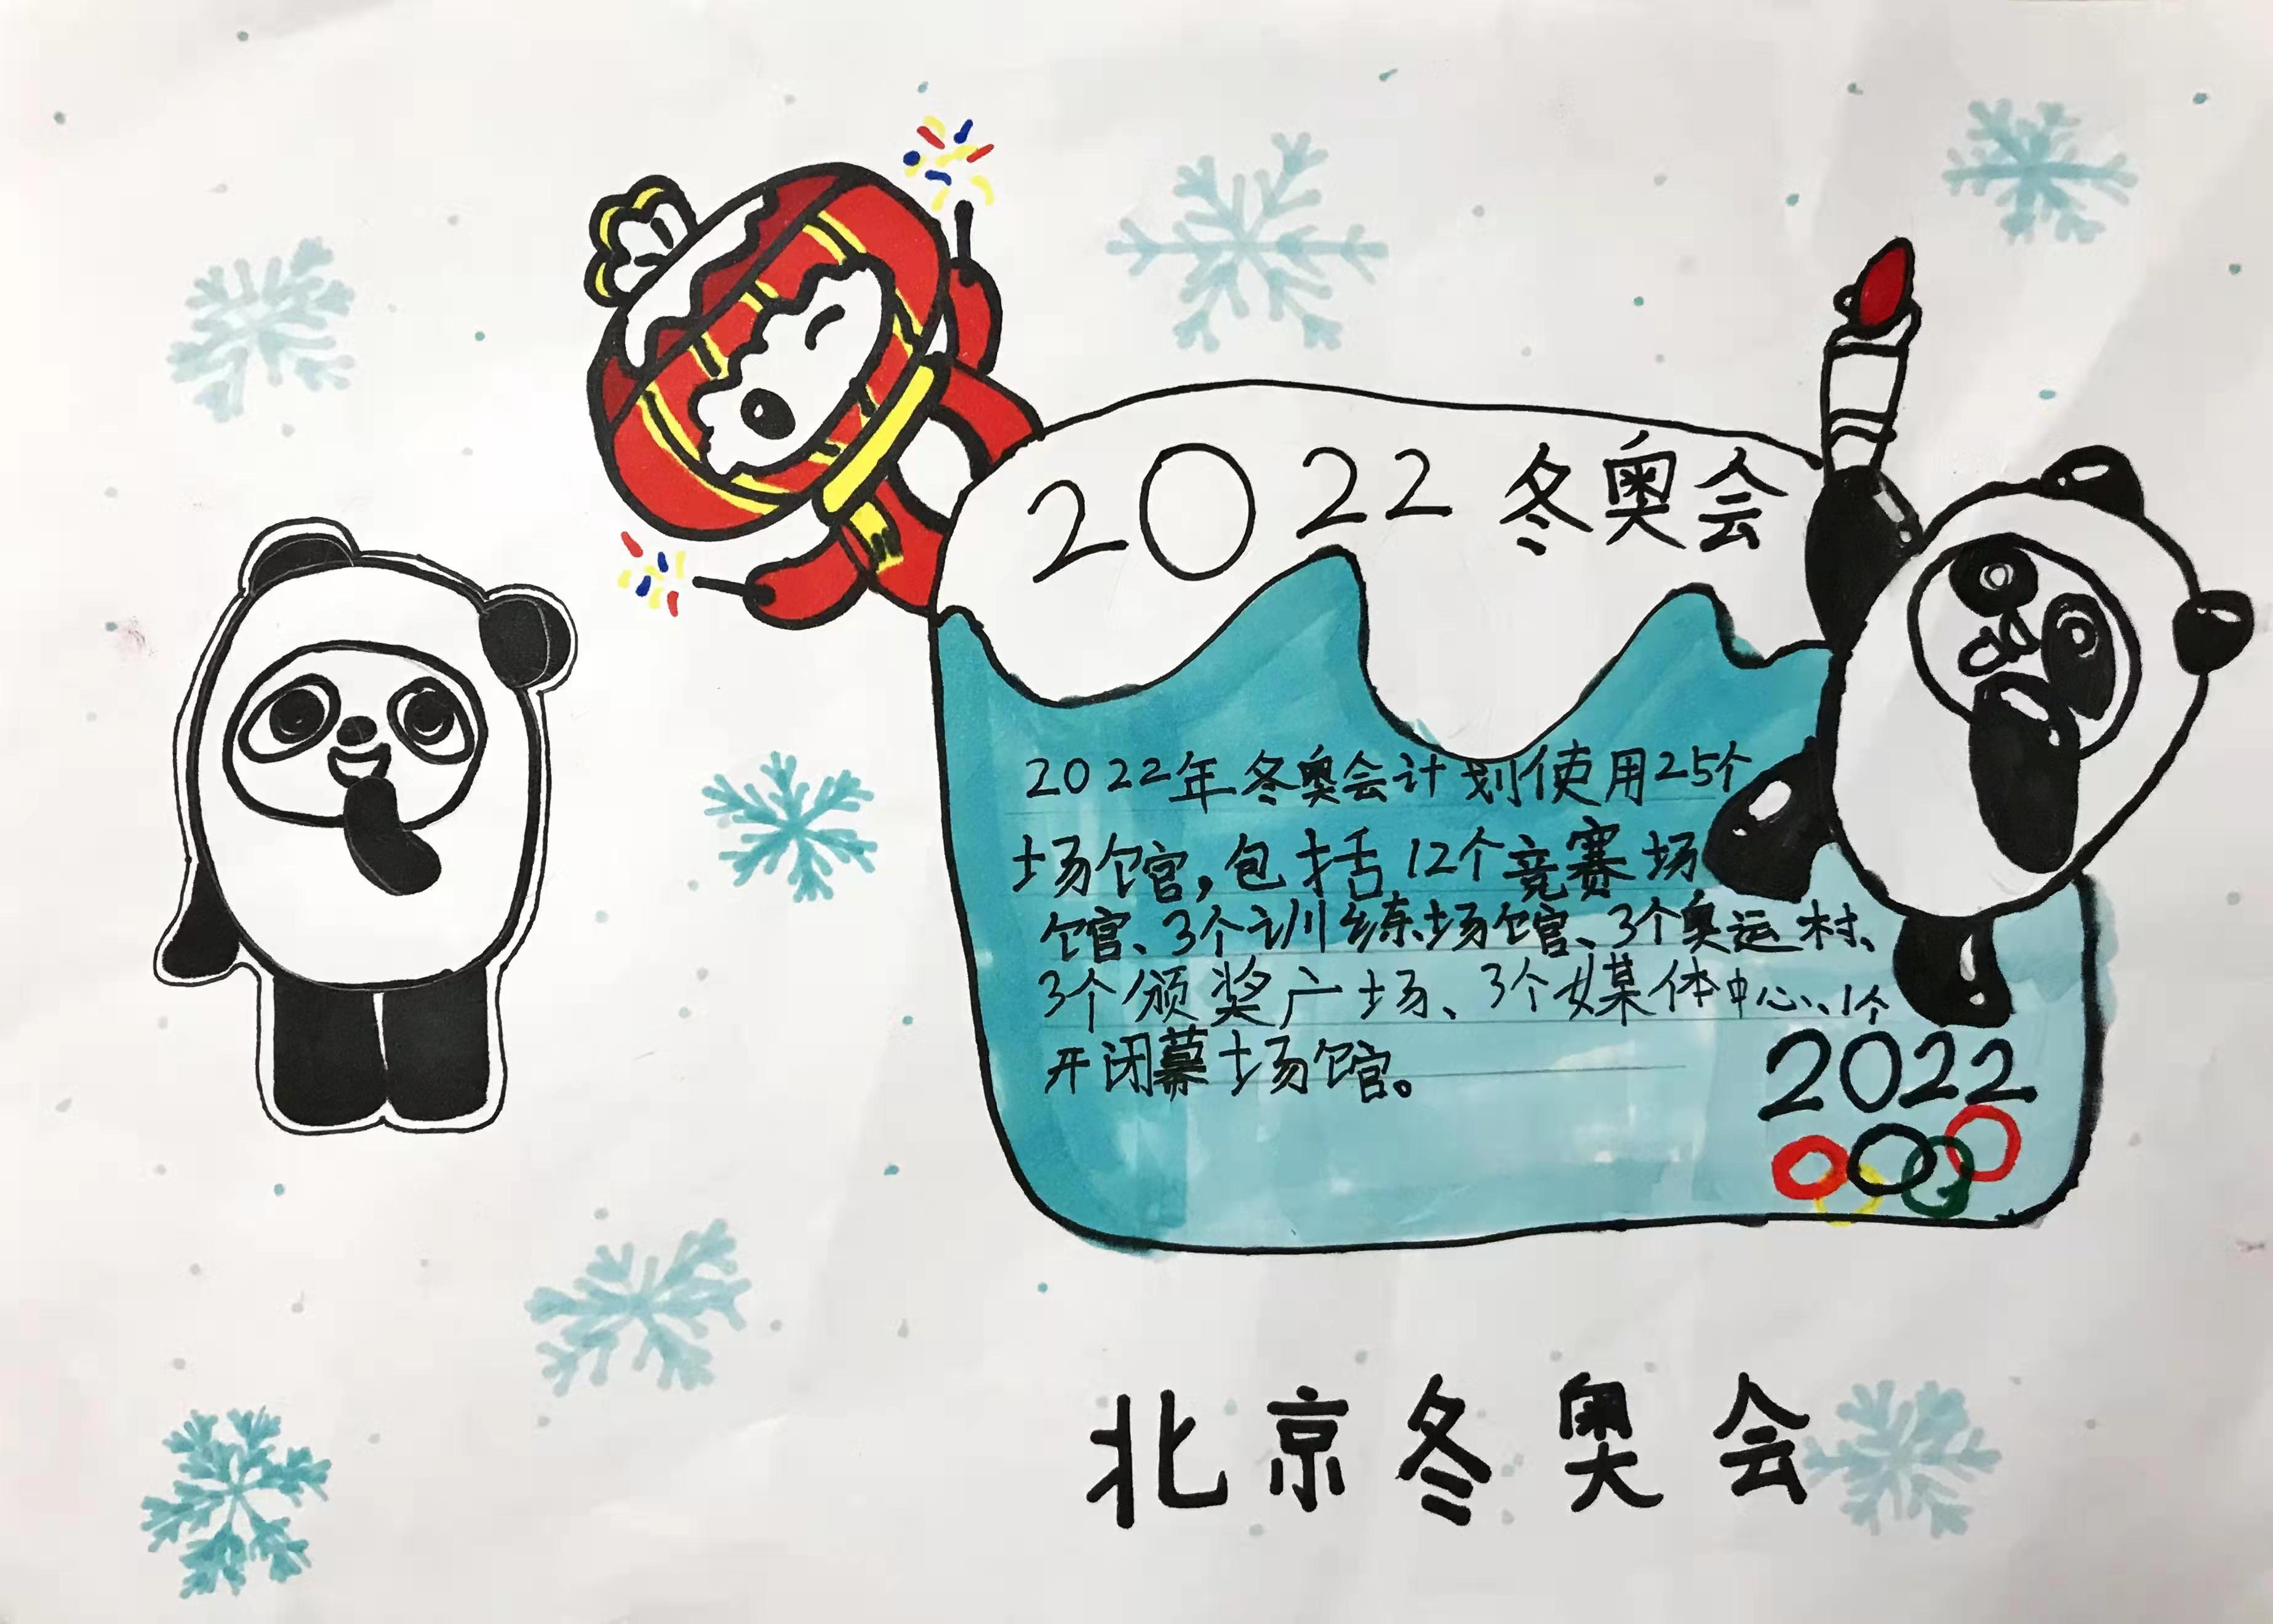 2022冬奥会
2022年冬奥会计划使用25个
场馆,包括12个竞赛场
馆、3个训练场馆、3个奥运村、
3个颁奖广场、3个媒体中心、1个
开闭幕场馆。
2022
北京冬奥会